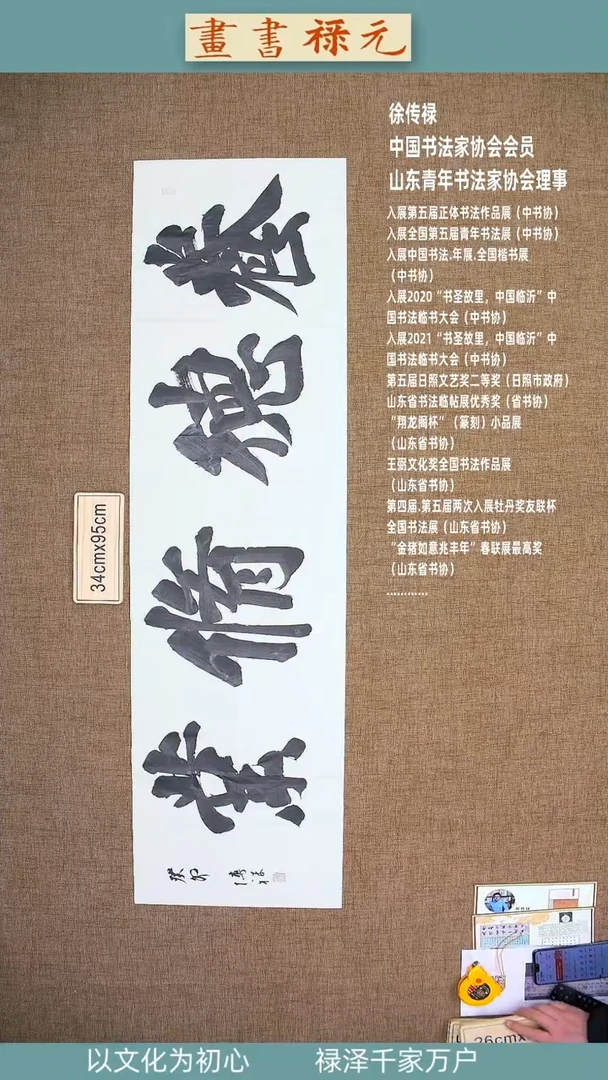 畫書禄元
徐传禄
中国书法家协会会员
山东青年书法家协会理事
入展第五届正体书法作品展（中书协）
入展全国第五届青年书法展（中书协）
入展中国书法.年展.全国楷书展
（中书协）
入展2020“书圣故里，中国临沂”中
国书法临书大会（中书协）
入展2021“书圣故里，中国临沂”中
国书法临书大会（中书协）
第五届日照文艺奖二等奖（日照市政府）
山东省书法临帖展优秀奖（省书协）
“翔龙阁杯”（篆刻）小品展
（山东省书协）
王弼文化奖全国书法作品展
（山东省书协）
第四届.第五届两次入展牡丹奖友联杯
全国书法展（山东省书协）
“金猪如意兆丰年”春联展最高奖
（山东省书协）
............
德脩業
癸卯 傳禄
34cmx95cm
26cmx
以文化为初心 禄泽千家万户